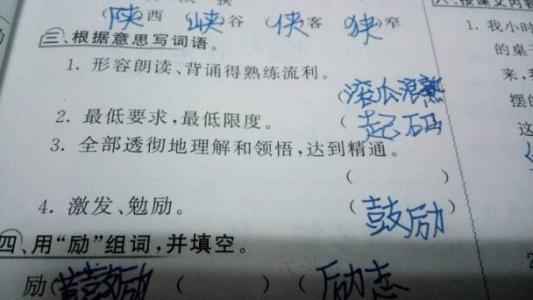 (陕)西 (峡)谷 (侠)客 (狭)窄
三、根据意思写词语。
1. 形容朗读、背诵得熟练流利。
(滚瓜浪熟)
2. 最低要求,最低限度。 (起码)
3. 全部透彻地理解和领悟,达到精通。
( )
4. 激发、勉励。 (鼓励)
四、用“励”组词,并填空。
励(鼓励) ( ) (励志)
1. 我小时
的桌子
来,
摆的
这